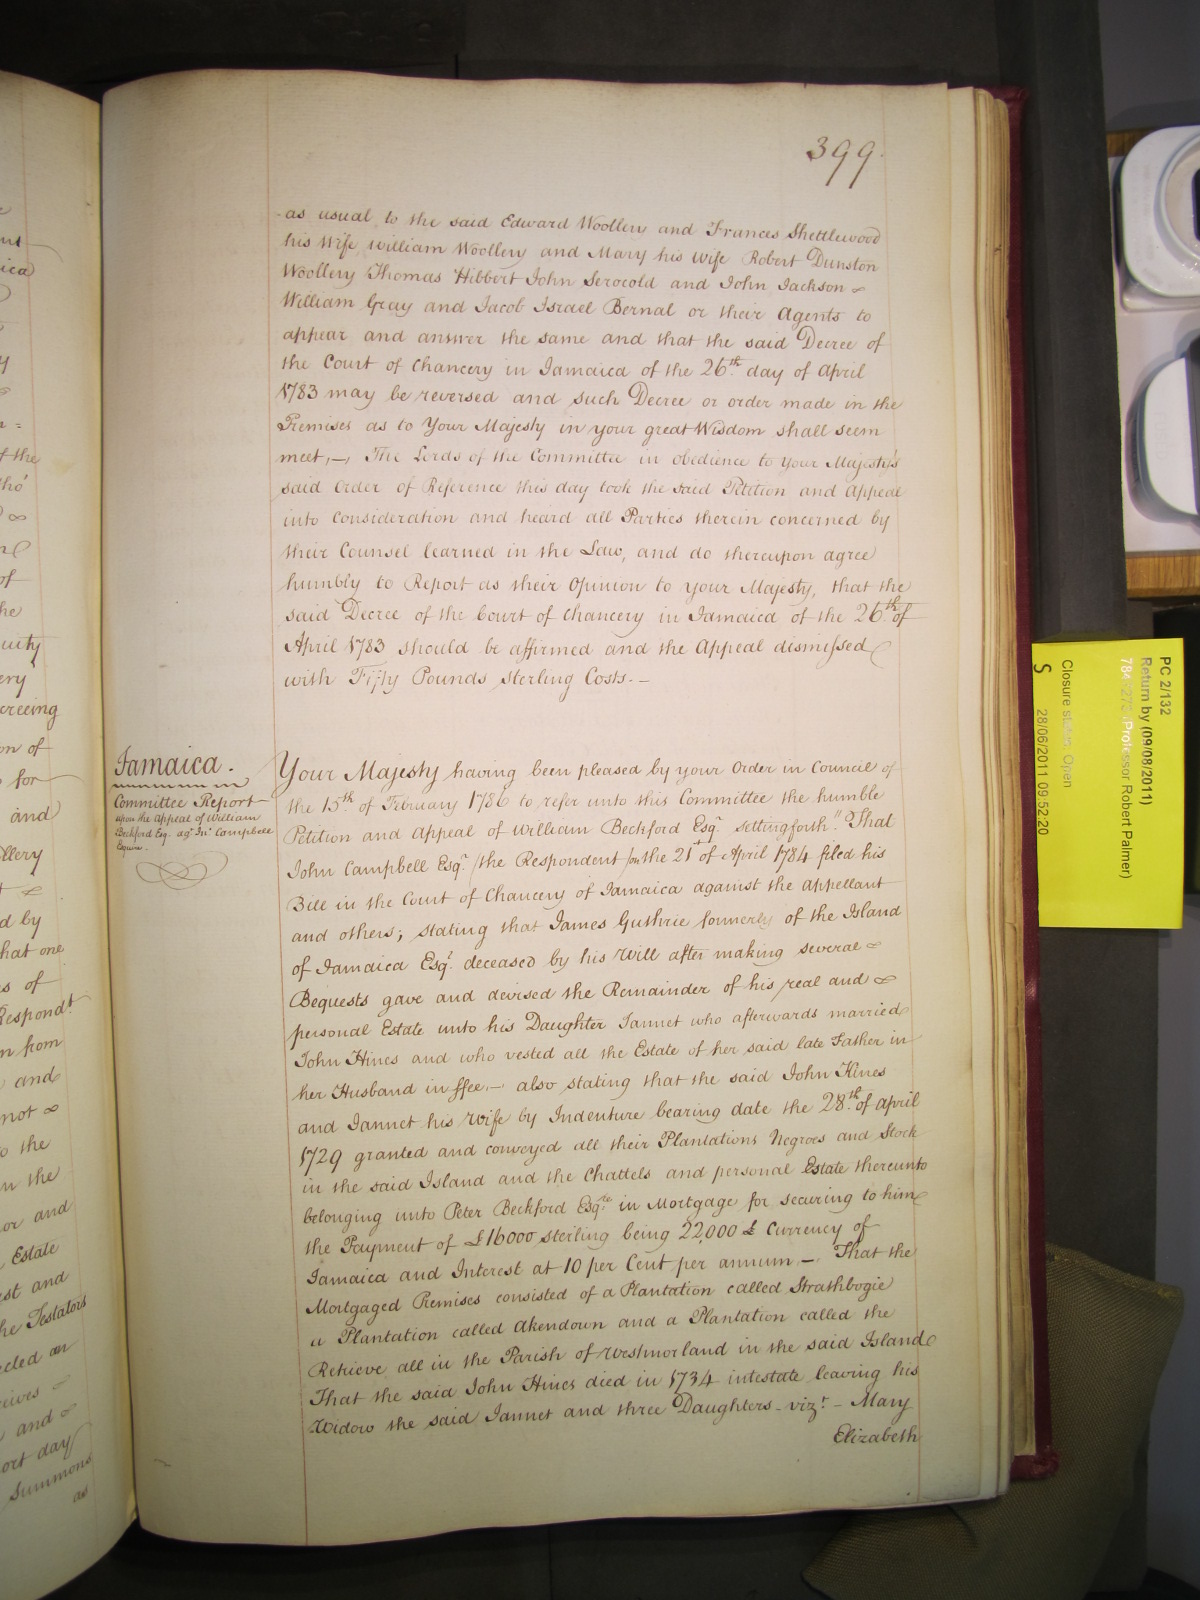 399.
as usual to the said Edward Woollery and Frances Shettlewood
his Wife William Woollery and Mary his Wife Robert Dunston
Woollery Thomas Hibbert John Serocold and John Jackson
William Gray and Jacob Israel Bernal or their Agents to
appear and answer the same and that the said Decree of
the Court of Chancery in Jamaica of the 26th. day of April
1783 may be reversed and such Decree or order made in the
Premises as to Your Majesty in your great Wisdom shall seem
meet,—, The Lords of the Committee in obedience to Your Majesty's
said Order of Reference this day took the said Petition and Appeal
into Consideration and heard all Parties therein concerned by
their Counsel learned in the Law, and do thereupon agree
humbly to Report as their Opinion to your Majesty, that the
said Decree of the Court of Chancery in Jamaica of the 26th. of
April 1783 should be affirmed and the Appeal dismissed
with Fifty Pounds sterling Costs.—
Jamaica.
Committee Report
upon the Appeal of William
Beckford Esq. agt. Jno. Campbell
Esquire.
Your Majesty having been pleased by your Order in Council of
the 15th. of February 1786 to refer unto this Committee the humble
Petition and Appeal of William Beckford Esqr. setting forth "That
John Campbell Esqr. (the Respondent) on the 21st of April 1784 filed his
Bill in the Court of Chancery of Jamaica against the Appellant
and others; stating that James Guthrie formerly of the Island
of Jamaica Esqr. deceased by his Will after making several
Bequests gave and devised the Remainder of his real and
personal Estate unto his Daughter Jannet who afterwards married
John Hines and who vested all the Estate of her said late Father in
her Husband in ffee.— also stating that the said John Hines
and Jannet his Wife by Indenture bearing date the 28th. of April
1729 granted and conveyed all their Plantations Negroes and Stock
in the said Island and the Chattels and personal Estate thereunto
belonging unto Peter Beckford Esqre. in Mortgage for securing to him
the Payment of £16000 sterling being 22,000 £ Currency of
Jamaica and Interest at 10 per Cent per annum.— That the
Mortgaged Premises consisted of a Plantation called Strathbogie
a Plantation called Akendown and a Plantation called the
Retrieve all in the Parish of Westmorland in the said Island
That the said John Hines died in 1734 intestate leaving his
Widow the said Jannet and three Daughters - vizt. - Mary
Elizabeth
PC 2/132
Return by (09/08/2011)
(Professor Robert Palmer)
Closure status: Open
S
28/06/2011 09:52:20
ica
the
of
uity
ery
creeing
on of
for
and
llery
d by
that one
s of
Respondt
n from
and
not
to the
in the
or and
Estate
est and
the Testators
and
ort day
summons
as